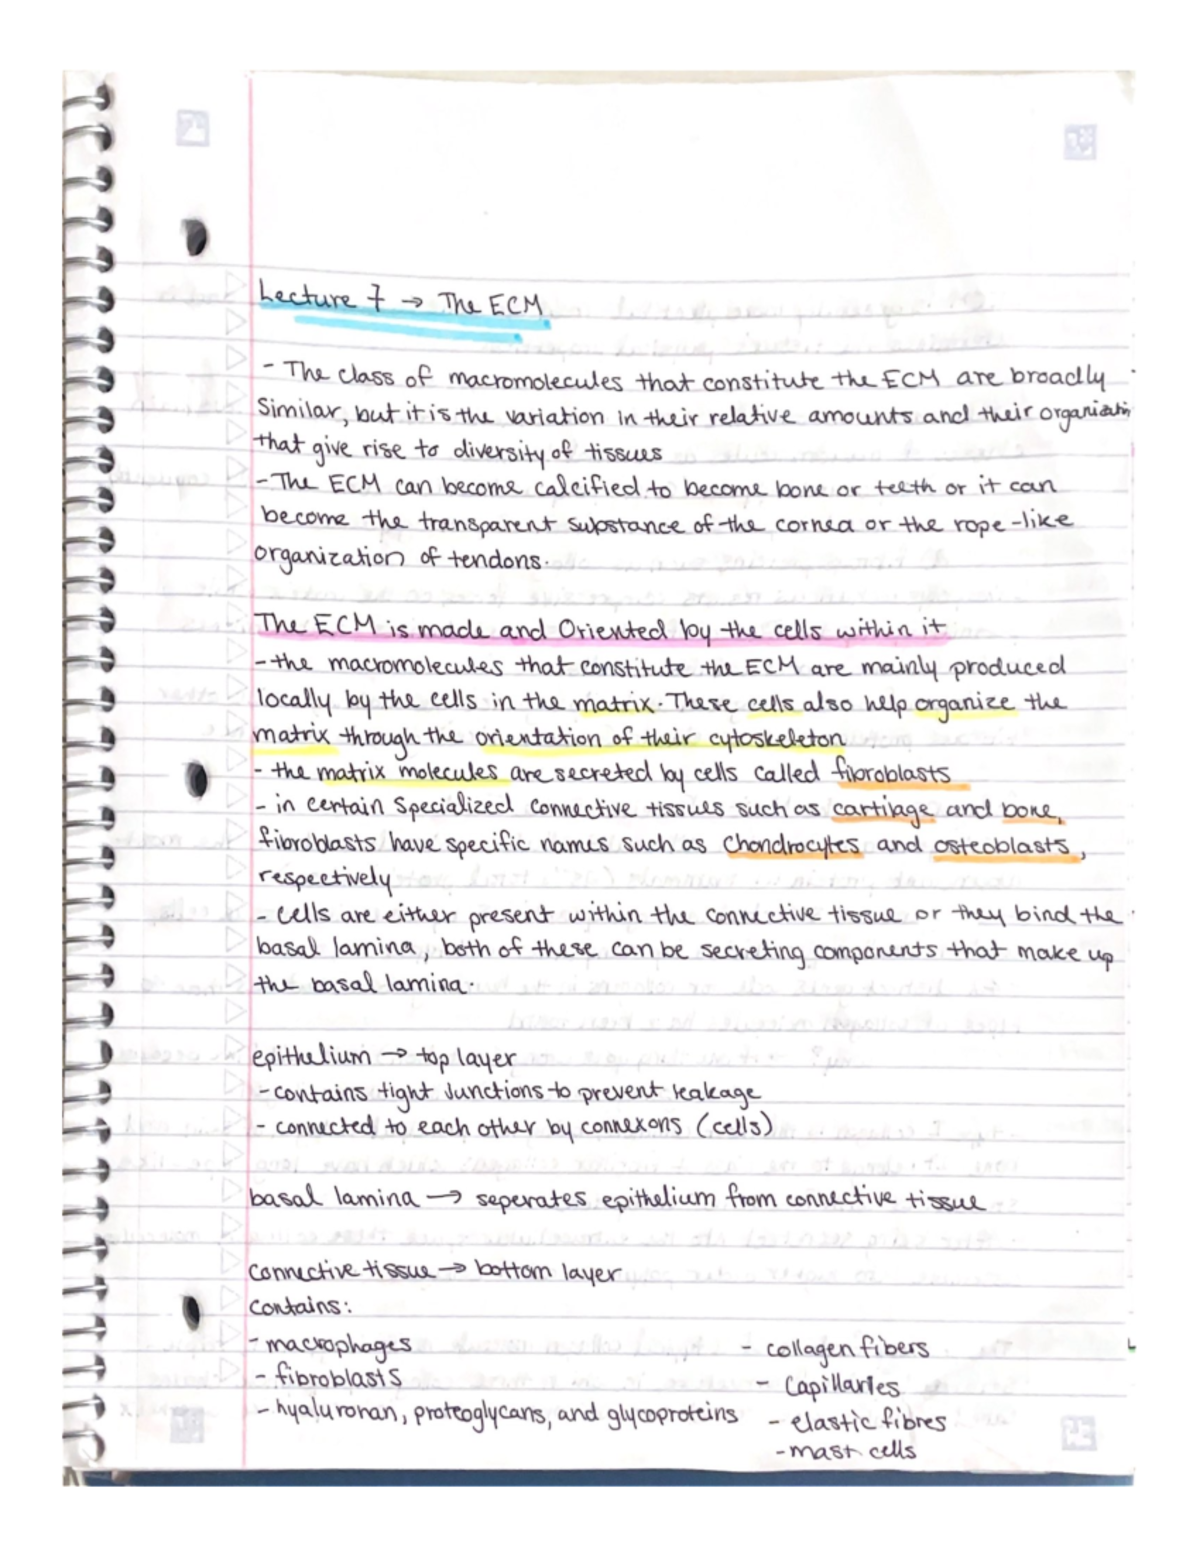 Lecture 7 → The ECM
- The class of macromolecules that constitute the ECM are broadly
Similar, but it is the variation in their relative amounts and their organization
that give rise to diversity of tissues
- The ECM can become calcified to become bone or teeth or it can
become the transparent substance of the cornea or the rope-like
organization of tendons.
The ECM is made and Oriented by the cells within it
- the macromolecules that constitute the ECM are mainly produced
locally by the cells in the matrix. These cells also help organize the
matrix through the orientation of their cytoskeleton
- the matrix molecules are secreted by cells called fibroblasts
- in certain specialized connective tissues such as cartilage and bone,
fibroblasts have specific names such as chondrocytes and osteoblasts,
respectively
- cells are either present within the connective tissue or they bind the
basal lamina, both of these can be secreting components that make up
the basal lamina.
epithelium → top layer
- contains tight junctions to prevent leakage
- connected to each other by connexons (cells)
basal lamina → seperates epithelium from connective tissue
connective tissue → bottom layer
contains:
- macrophages
- fibroblasts
- hyaluronan, proteoglycans, and glycoproteins
- collagen fibers
- Capillaries
- elastic fibres
- mast cells